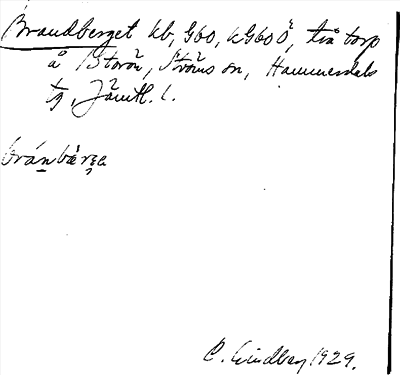 Brandberget kb, G60, kG60Ö, två torp
å Storön, Ströms sn, Hammerdals
tg, Jämtl. l.
bránbä̀rɛa
C. Lindberg 1929.